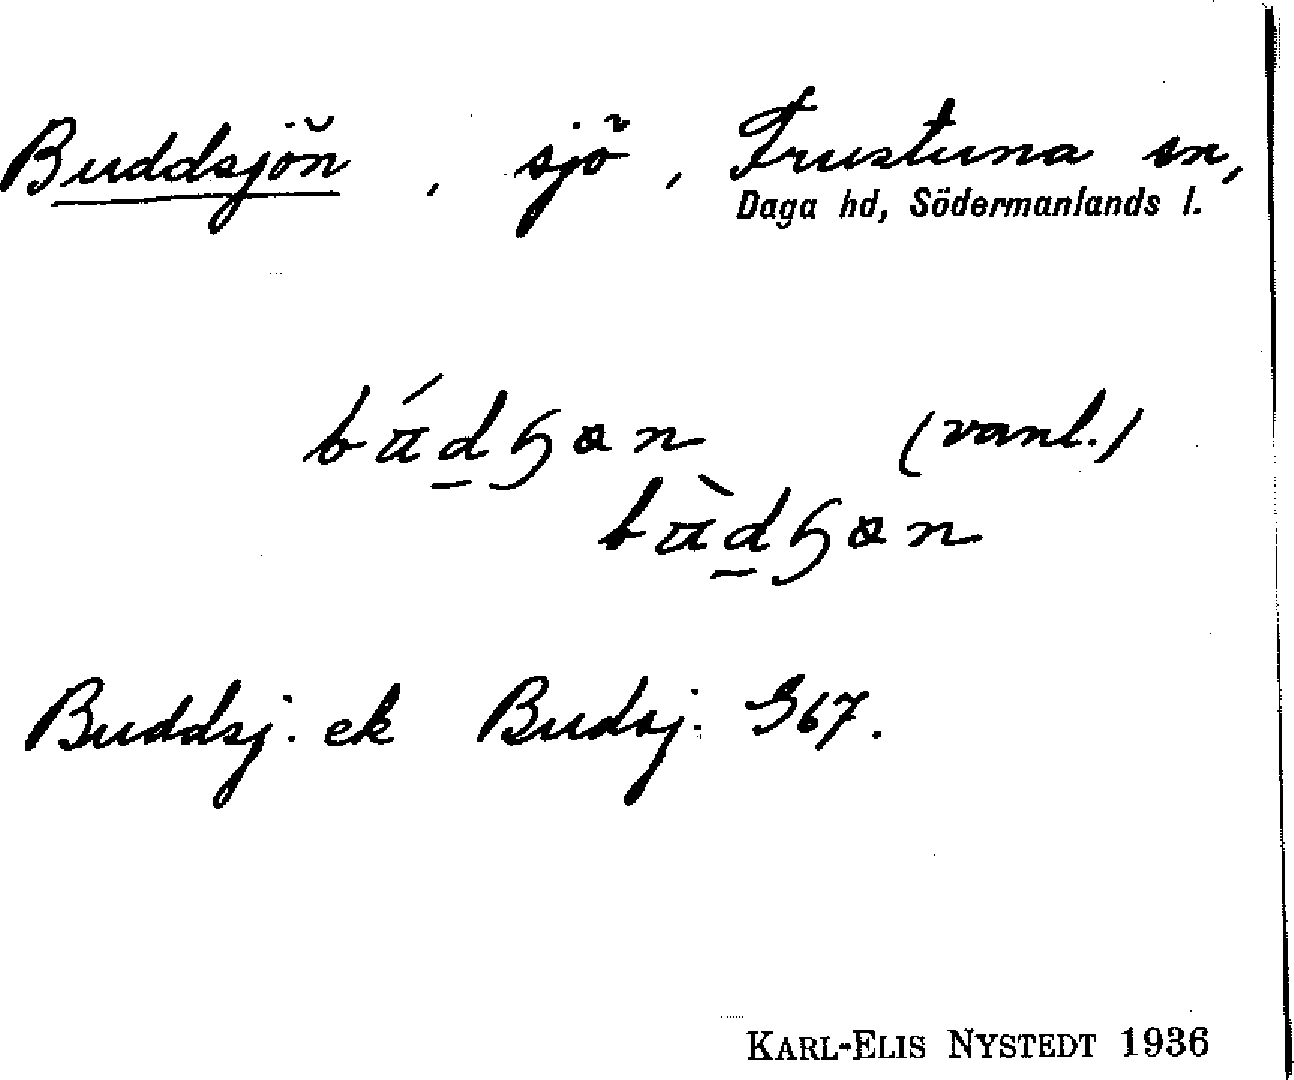 Buddsjön, sjö, Frustuna sn,
Daga hd, Södermanlands l.
búdɧan (vanl.)
bùdɧan
Buddsj. ek Budsj. G67.
KARL-ELIS NYSTEDT 1936